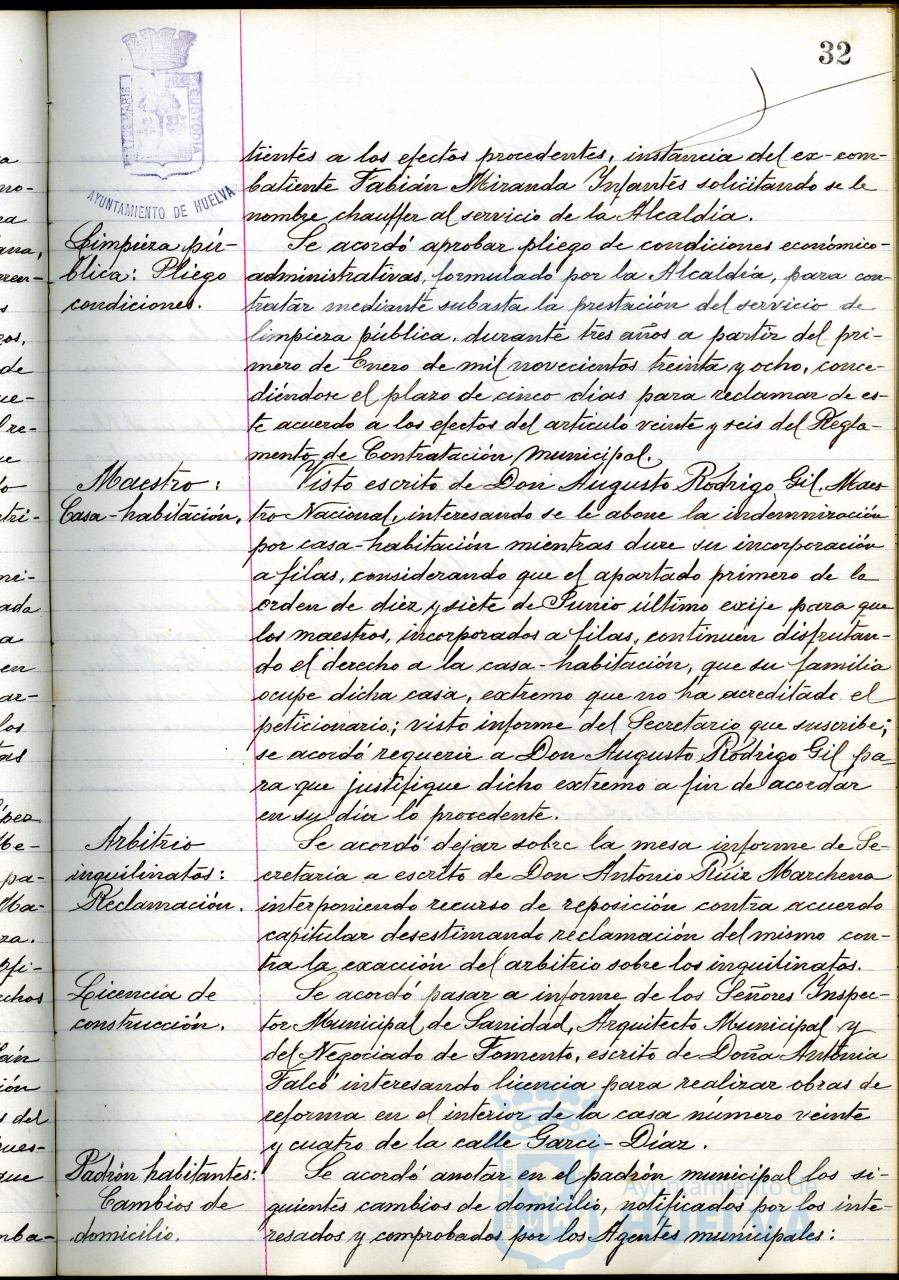 32
PORTUS MARIS
CUSTODIA
AYUNTAMIENTO DE HUELVA
tientes a los efectos procedentes, instancia del ex-com-
batiente Fabián Miranda Infantes solicitando se le
nombre chauffer al servicio de la Alcaldía.
Limpieza pú-
blica: Pliego
condiciones.
Se acordó aprobar pliego de condiciones económico-
administrativas, formulado por la Alcaldía, para con-
tratar mediante subasta la prestación del servicio de
limpieza pública, durante tres años a partir del pri-
mero de Enero de mil novecientos treinta y ocho, conce-
diéndose el plazo de cinco días para reclamar de es-
te acuerdo a los efectos del artículo veinte y seis del Regla-
mento de Contratación municipal.
Maestro:
Casa-habitación.
Visto escrito de Don Augusto Rodrigo Gil, Maes-
tro Nacional, interesando se le abone la indemnización
por casa-habitación mientras dure su incorporación
a filas, considerando que el apartado primero de la
orden de diez y siete de Junio último exije para que
los maestros, incorporados a filas, continuen disfrutan-
do el derecho a la casa-habitación, que su familia
ocupe dicha casa, extremo que no ha acreditado el
peticionario; visto informe del Secretario que suscribe;
se acordó requerir a Don Augusto Rodrigo Gil pa-
ra que justifique dicho extremo a fin de acordar
en su día lo procedente.
Arbitrio
inquilinatos:
Reclamación.
Se acordó dejar sobre la mesa informe de Se-
cretaria a escrito de Don Antonio Rúiz Marchena
interponiendo recurso de reposición contra acuerdo
capitular desestimando reclamación del mismo con-
tra la exacción del arbitrio sobre los inquilinatos.
Licencia de
construcción.
Se acordó pasar a informe de los Señores Inspec-
tor Municipal de Sanidad, Arquitecto Municipal y
del Negociado de Fomento, escrito de Doña Antonia
Falcó interesando licencia para realizar obras de
reforma en el interior de la casa número veinte
y cuatro de la calle Garci-Díaz.
Padrón habitantes:
Cambios de
domicilio.
Se acordó anotar en el padrón municipal los si-
guientes cambios de domicilio, notificados por los inte-
resados y comprobados por los Agentes municipales:
Ayuntamiento de
HUELVA